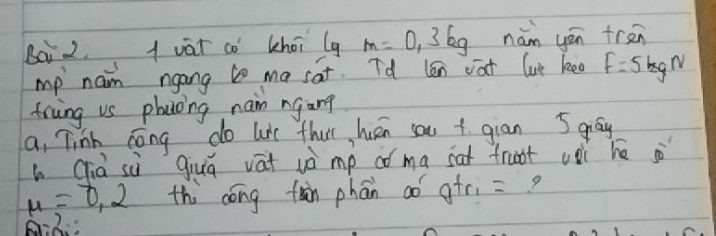 Bài 2. 1 vật có khối lg m = 0,3 kg nằm yên trên
mp nằm ngang ko ma sát. Td lên vật lực kéo f = 5 N
trùng vs phương nằm ngang
a, Tính công do lực thực hiện sau t. gian 5 giây
b Giả sử giữa vật và mp có ma sát trượt với hệ số
μ = 0,2 thì công toàn phần có gtrị = ?